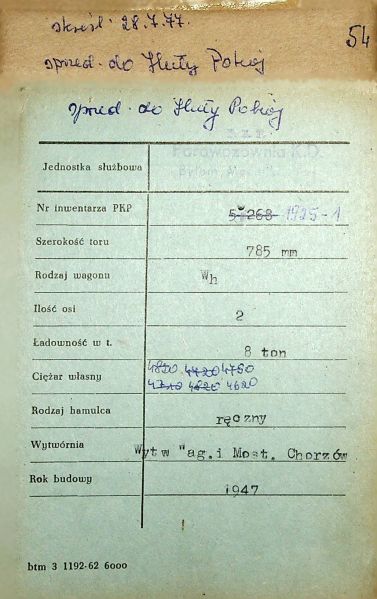 skreśl. 28.7.77.
54
sprzed. do Huty Pokój
sprzed. do Huty Pokój
P.K.P.
Parowozownia K.D.
Jednostka służbowa
Bytom
Nr inwentarza PKP 5 268 1925-1
Szerokość toru 785 mm
Rodzaj wagonu Wh
Ilość osi 2
Ładowność w t. 8 ton
4820 4420 4760
Ciężar własny 4620 4620
Rodzaj hamulca ręczny
Wytwórnia Wytw Wag.i Most. Chorzów
Rok budowy 1947
btm 3 1192-62 6000